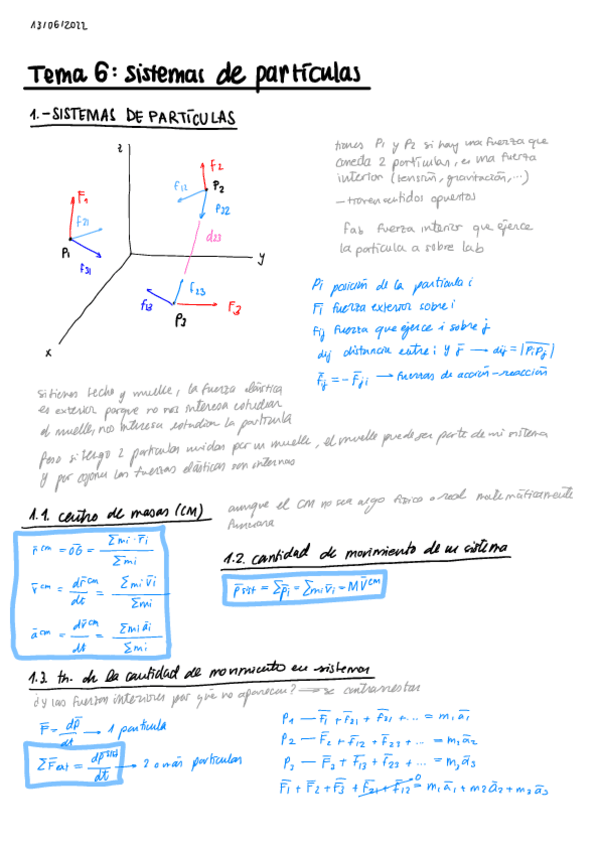 13/06/2022
Tema 6: sistemas de partículas
1.-SISTEMAS DE PARTÍCULAS
z
y
x
F1
F21
P1
F31
F2
F12
P2
d23
F23
F13
P3
F3
tienes P1 y P2 si hay una fuerza que
conecta 2 partículas, es una fuerza
interior (tensión, gravitación, ...)
- tienen sentidos opuestos
Fab fuerza interior que ejerce
la partícula a sobre la b
Pi posición de la partícula i
Fi fuerza exterior sobre i
Fij fuerza que ejerce i sobre j
dij distancia entre i y j → dij = |PiPj|
F̄ij = - F̄ji → fuerzas de acción-reacción
si tienes techo y muelle, la fuerza elástica
es exterior porque no nos interesa estudiar
el muelle, nos interesa estudiar la partícula
Pero si tengo 2 partículas unidas por un muelle, el muelle puede ser parte de mi sistema
y por cojones las fuerzas elásticas son internas
1.1. centro de masas (CM)
aunque el CM no sea algo físico o real matemáticamente
funciona
r̄ᶜᵐ = OG = Σmi·r̄i / Σmi
v̄ᶜᵐ = dr̄ᶜᵐ/dt = Σmi v̄i / Σmi
āᶜᵐ = dv̄ᶜᵐ/dt = Σmi āi / Σmi
1.2. cantidad de movimiento de un sistema
p̄ sist = Σp̄i = Σmi v̄i = M v̄ᶜᵐ
1.3. th. de la cantidad de movimiento en sistemas
¿y las fuerzas interiores por qué no aparecen? → se contrarrestan
F̄ = dp̄/dt → 1 partícula
ΣF̄ext = dp̄ sist/dt → 2 o más partículas
P1 — F̄1 + F̄21 + F̄31 + ... = m1 ā1
P2 — F̄2 + F̄12 + F̄23 + ... = m2 ā2
P3 — F̄3 + F̄13 + F̄23 + ... = m3 ā3
F̄1 + F̄2 + F̄3 + F̄21 + F̄12 0 = m1 ā1 + m2 ā2 + m3 ā3